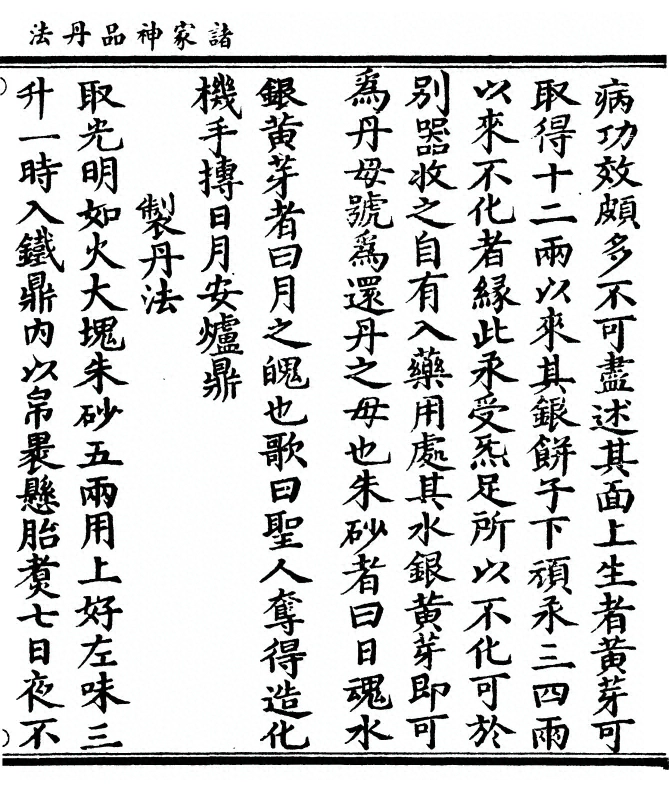 諸家神品丹法
病功效頗多不可盡述其面上生者黃芽可
取得十二兩以來其銀餅子下頑汞三四兩
以來不化者緣此汞受炁足所以不化可於
別器收之自有入藥用處其水銀黃芽即可
爲丹母號爲還丹之母也朱砂者曰日魂水
銀黃芽者曰月之魄也歌曰聖人奪得造化
機手摶日月安爐鼎
製丹法
取光明如火大塊朱砂五兩用上好左味三
升一時入鐵鼎內以帛褁懸胎煑七日夜不